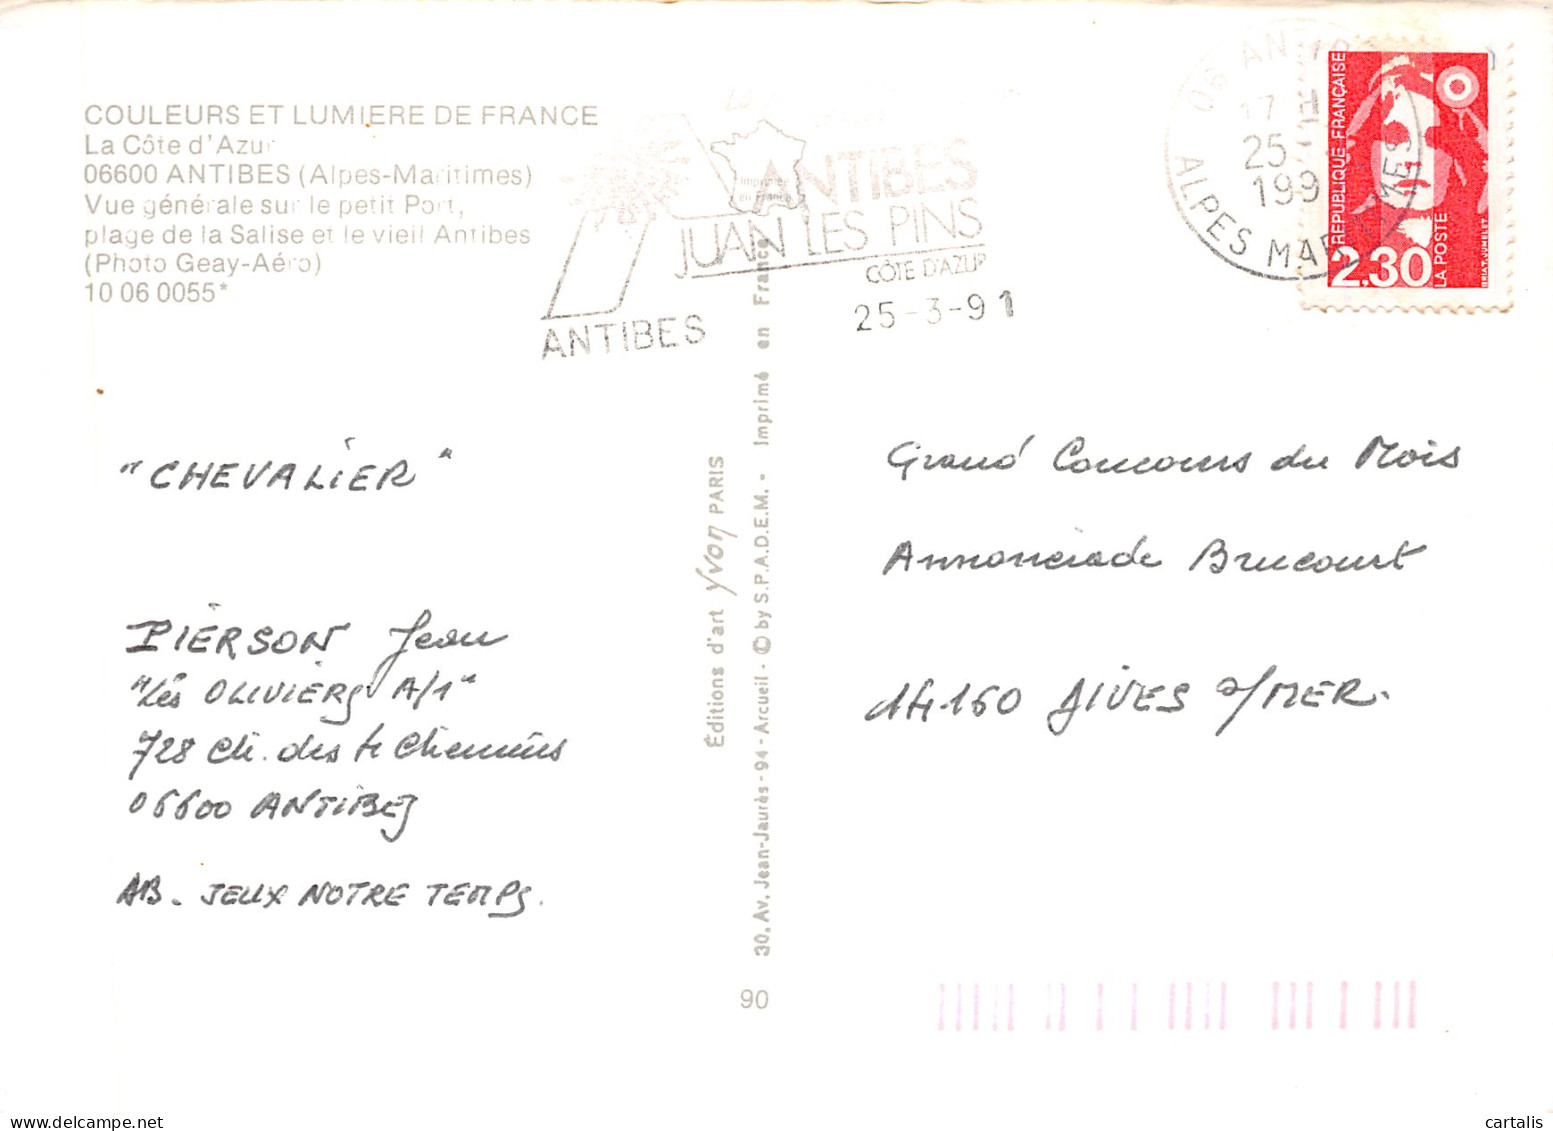 COULEURS ET LUMIERE DE FRANCE
La Côte d'Azur
06600 ANTIBES (Alpes-Maritimes)
Vue générale sur le petit Port,
plage de la Salise et le vieil Antibes
(Photo Geay-Aéro)
10 06 0055*
Imprimé
en France
ANTIBES
JUAN LES PINS
CÔTE D'AZUR
25-3-91
ANTIBES
06 ANTIBES
17 H
25
199
ALPES MARITIMES
REPUBLIQUE FRANÇAISE
2,30
LA POSTE
BRIAT-JUMELET
"CHEVALIER"
PIERSON Jean
"Les OLIVIERS A/1"
728 Ch. des 4 Chemins
06600 ANTIBES
AB. JEUX NOTRE TEMPS.
Éditions d'art Yvon PARIS
30, Av. Jean-Jaurès - 94 - Arcueil - © by S.P.A.D.E.M. - Imprimé en France
90
Grand Concours du Mois
Annonciade Brucourt
14160 DIVES S/MER.
cartalis